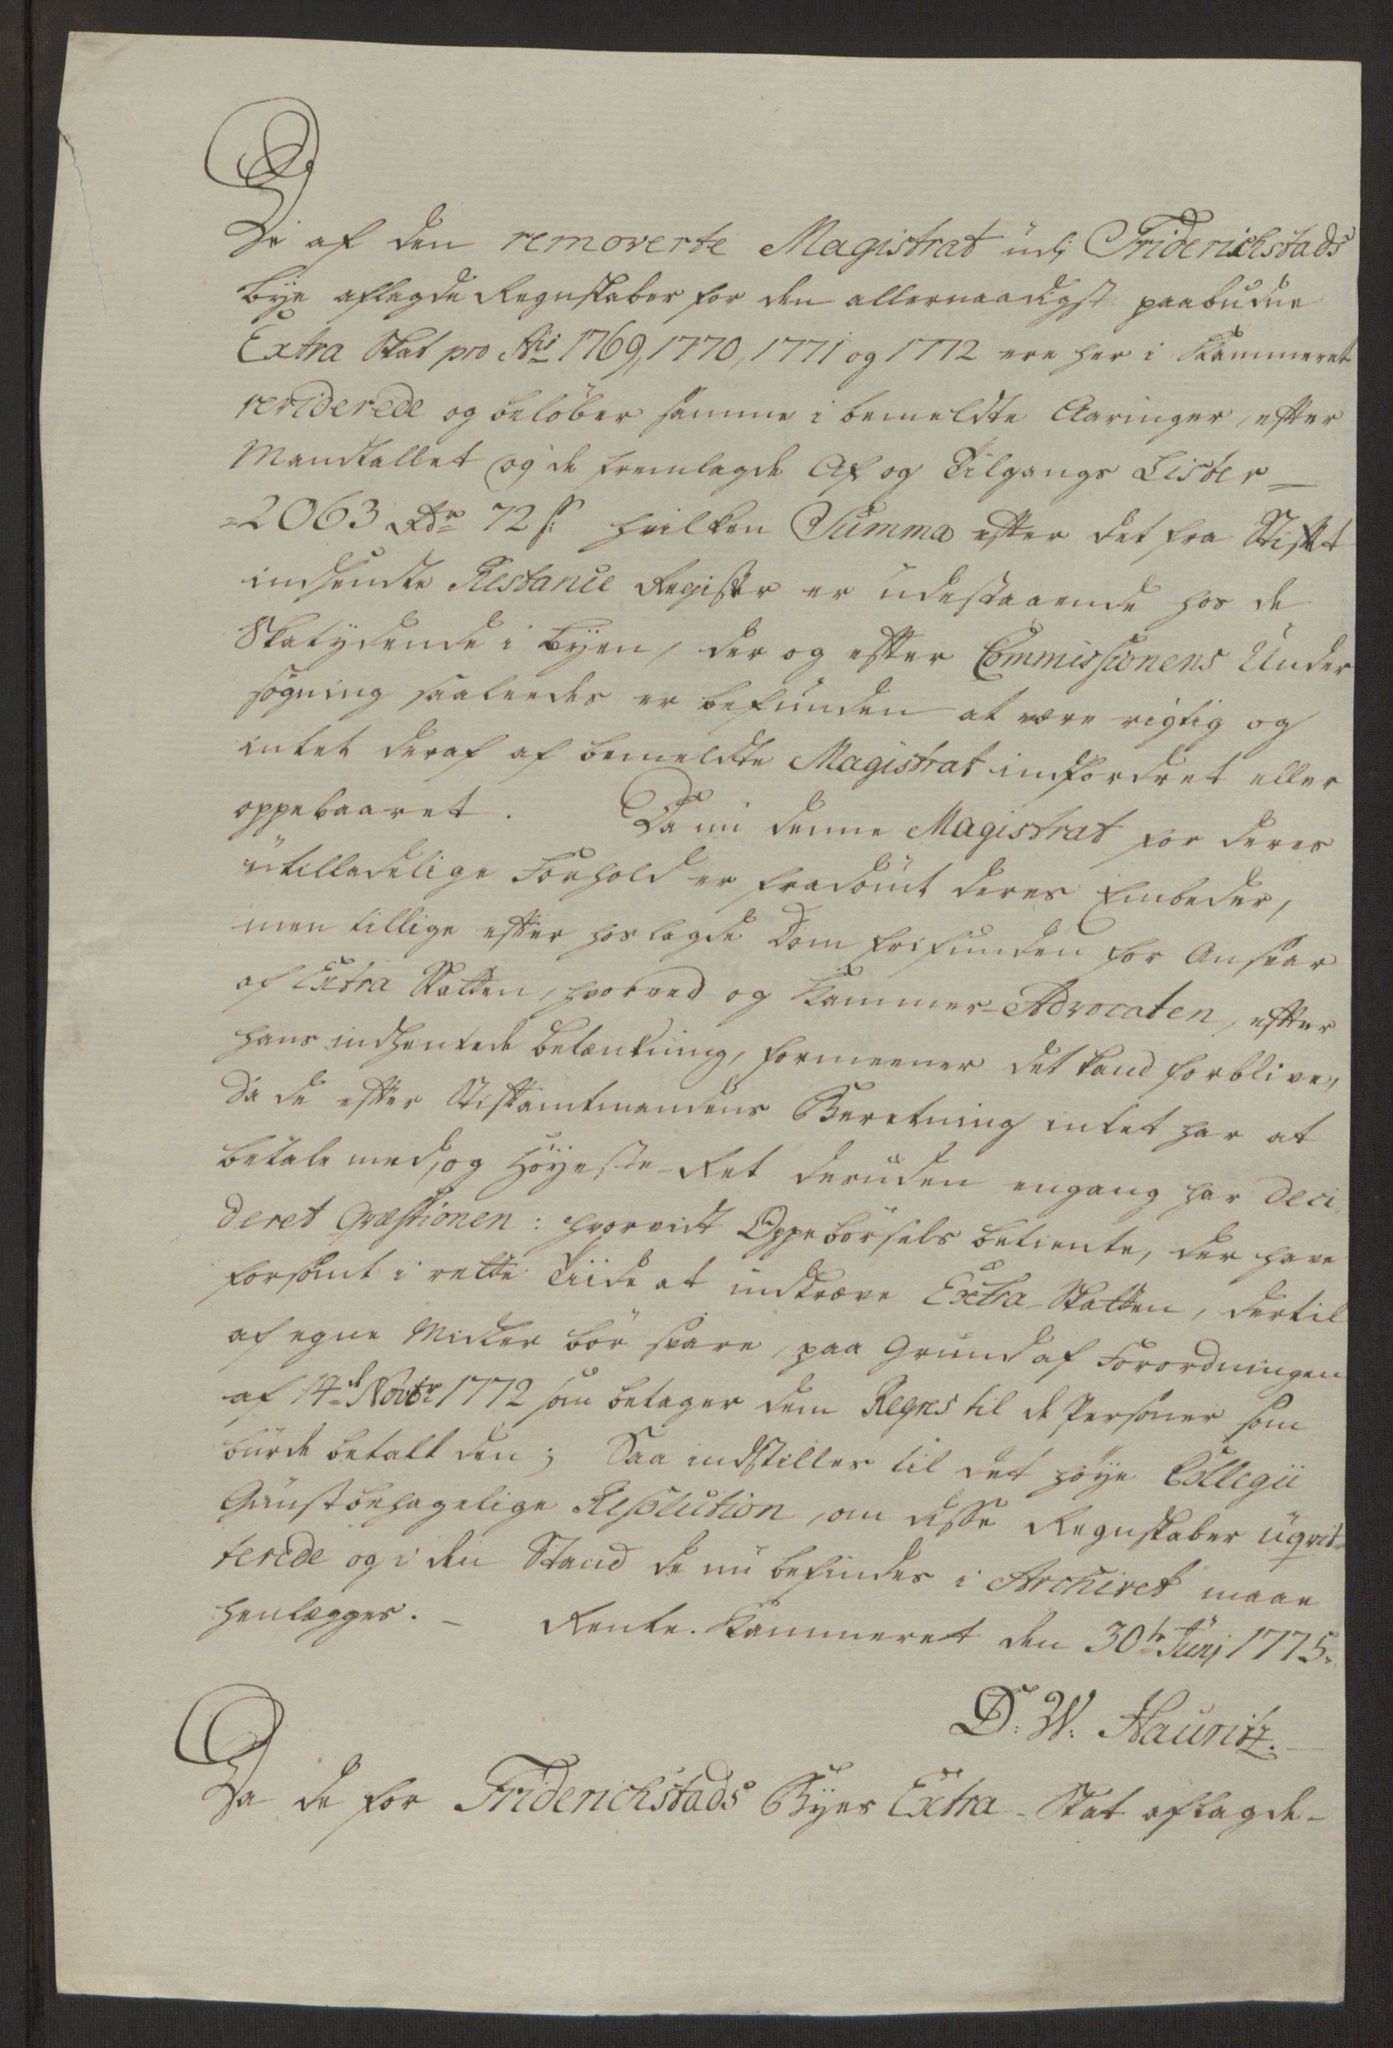 De af den removerte Magistrat udj Friderichstads
Bye aflagde Regnskaber for den allernaadigst paabudne
Extra Skat pro Ais 1769, 1770, 1771 og 1772 ere her i Kammeret
reviderede og beløber samme i bemeldte Aaringer, efter
Mandtallet og de fremlagde Af og Tilgangs Lister
=2063 Rdr 72 s. hvilken Summa efter det fra Stiftet
indsendte Restance Register er udestaaende hos de
Skatydende i Byen, der og efter Commissionens Under
søgning saaleedes er befunden at være rigtig og
intet deraf af bemeldte Magistrat indfordret eller
oppebaaret. Da nu denne Magistrat for deres
utilladelige Forhold er fradömt deres Embeder,
men tillige efter hoslagde Dom frifunden for Ansvar
af Extra Skatten, hvorved og Kammer-Advocaten, efter
hans indhentede betænkning, formeener det kand forblive,
da de efter Stiftamtmandens Beretning intet har at
betale med, og Höyeste-Ret desuden engang har deci
deret Qvæstionen: hvorvidt Oppebörsels betiente, der have
forsömt i rette Tiide at inddræve Extra-Skatten, dertil
af egne Midler bör svare, paa Grund af Forordningen
af 14d Novbr 1772 som betager dem Regres til de Personer som
burde betalt den; Saa indstilles til det høye Collegii
Gunstbehagelige Resolution, om disse Regnskaber uqvit-
terede og i den Stand de nu befindes i Archivet maae
henlægges. - Rente-Kammeret den 30te Junj 1775.
D. W. Hauritz.
Da de for Friderichstads Byes Extra-Skat aflagde-